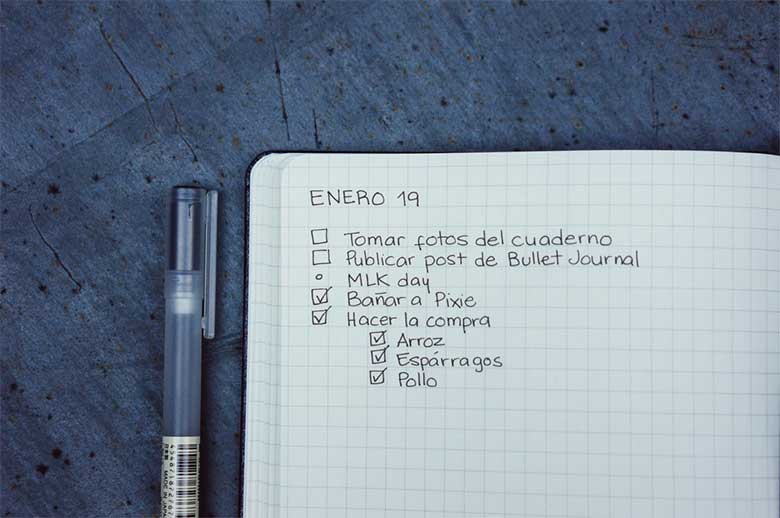 ENERO 19
Tomar fotos del cuaderno
Publicar post de Bullet Journal
MLK day
Bañar a Pixie
Hacer la compra
Arroz
Espárragos
Pollo
MADE IN JAPAN